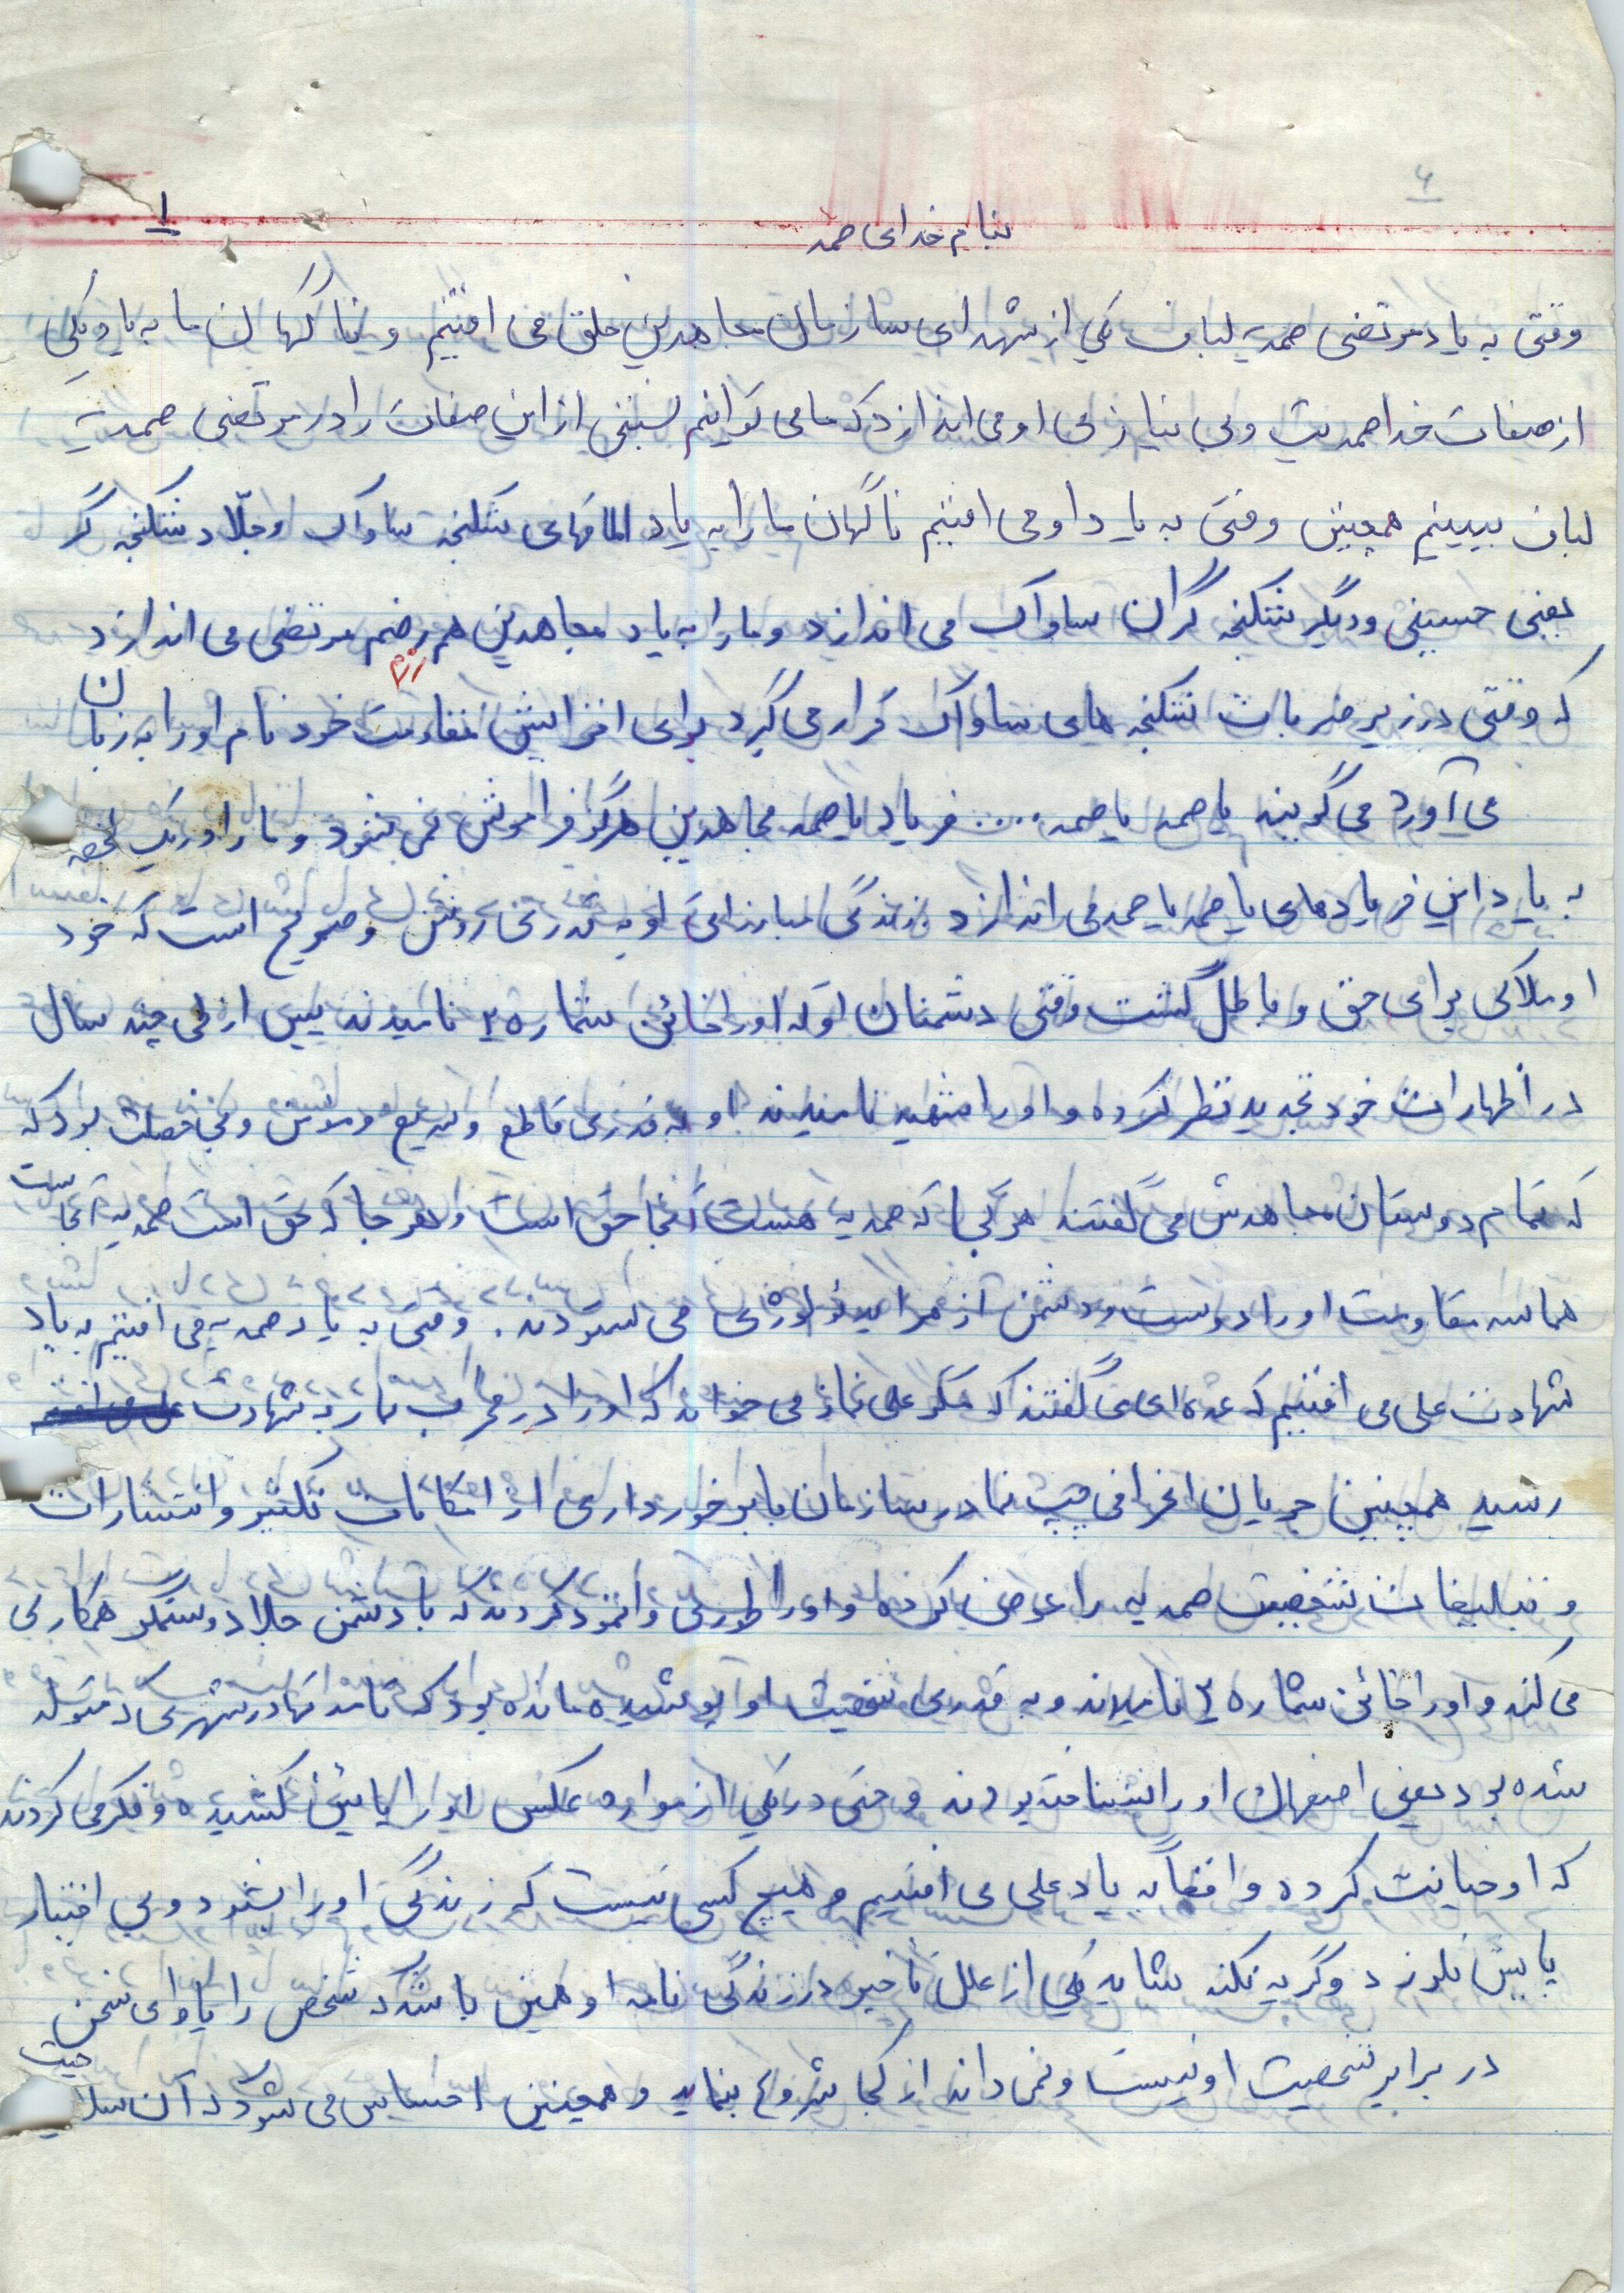 ۴
۱
بنام خدای صمد
وقتی به یاد مرتضی صمدیه لباف یکی از شهدای سازمان مجاهدین خلق می افتیم و ناگهان ما به یاد یکی
از صفات خدا صمدیت و بی نیازی او می اندازد که ما می توانیم نسبتی از این صفات را در مرتضی صمدیه
لباف ببینیم همچنین وقتی به یاد او می افتیم ناگهان ما را به یاد اطاقهای شکنجه ساواک و جلّاد شکنجه گر
یعنی حسینی و دیگر شکنجه گران ساواک می اندازد و ما را به یاد مجاهدین هم رضم مرتضی می اندازد
رزم
که وقتی در زیر ضربات شکنجه های ساواک قرار می گیرد برای افزایش مقاومت خود نام او را به زبان
می آورد می گویند یا صمد یا صمد ..... فریاد یا صمد مجاهدین هرگز فراموش نمی شود و ما را در یک لحظه
به یاد این فریادهای یا صمد یا صمد می اندازد زندگی مبارزاتی او به قدری روشن و صریح است که خود
او ملاکی برای حق و باطل گشت وقتی دشمنان او که او را خائن شماره ۲ نامیدند پس از طی چند سال
در اظهارات خود تجدید نظر کرده و او را شهید نامیدند او به قدری قاطع و سریع و خصلت بود که
که تمام دوستان مجاهدش می گفتند هر کجا که صمدیه هست آنجا حق است و هر جا که حق است صمدیه آنجاست
حماسه مقاومت او را دوست و دشمن از هر ایدئولوژی می ستودند. وقتی به یاد صمدیه می افتیم به یاد
شهادت علی می افتیم که عده ای می گفتند که مگر علی نماز می خواند که او را در محراب نماز به شهادت
رسید همچنین جریان انحرافی چپ نما در سازمان با برخورداری از امکانات تکثیر و انتشارات
و تبلیغات شخصیت صمدیه را عوض کرده و او را طوری وانمود کردند که با دشمن جلاد و ستمگر همکاری
می کند و او را خائن شماره ۲ نامیدند و به قدری شخصیت او پوشیده مانده بود که نه تنها در شهری که متولد
شده بود یعنی اصفهان او را نشناخته بودند و حتی در یکی از موارد عکس او را پائین کشیده و فکر می کردند
که او خیانت کرده واقعاً به یاد علی می افتیم و هیچ کسی نیست که زندگی او را بشنود و بی اختیار
پایش نلرزد و گریه نکند شاید یکی از علل تأخیر در زندگی نامه او همین باشد که شخص را یارای سخن
در برابر شخصیت او نیست و نمی داند از کجا شروع بنماید و همچنین احساس می شود که آن صلاحیت